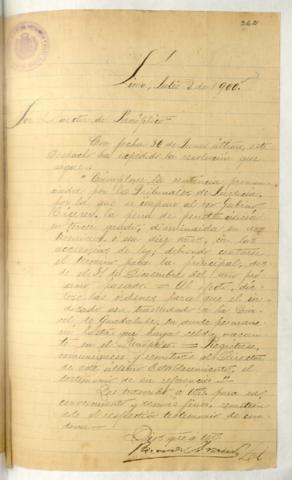 262
Lima, Julio 2 de 1900.
Sor Director del Panóptico
Con fecha 30 de Junio último, este
Despacho ha expedido la resolución que
sigue:
"Cúmplase la sentencia pronun-
ciada por los Tribunales de Justicia,
por la que se impone al reo
la pena de penitenciaría
en tercer grado, disminuida en un
término, o sea diez años, con las
accesorias de ley, debiendo contarse
el término para la principal, des-
de el 31 de Diciembre del año pró-
ximo pasado = Al efecto, díc-
tese las órdenes para que el in-
dicado sea trasladado a la Cár-
cel de Guadalupe, en donde permane-
cerá hasta que haya celda vacan-
te en el Panóptico = Regístrese,
comuníquese y remítase al Director
de este último Establecimiento, el
testimonio de su referencia."
Que trascribo a Ud. para su
conocimiento y demás fines, remitién-
dole el respectivo testimonio de con-
dena.
Dios gue a Ud.